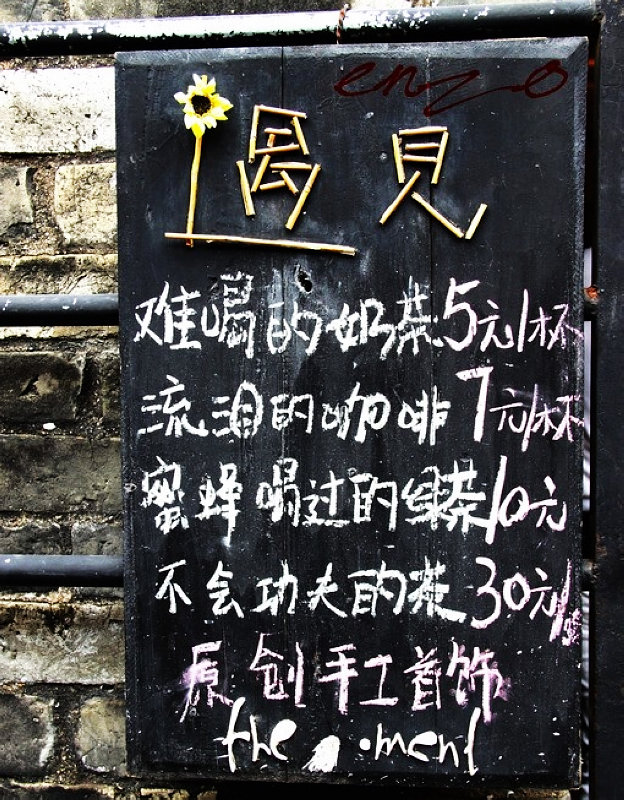 enzo
遇見
难喝的奶茶5元/杯
流泪的咖啡7元/杯
蜜蜂喝过的绿茶10元
不会功夫的茶30元/
原创手工首饰
the